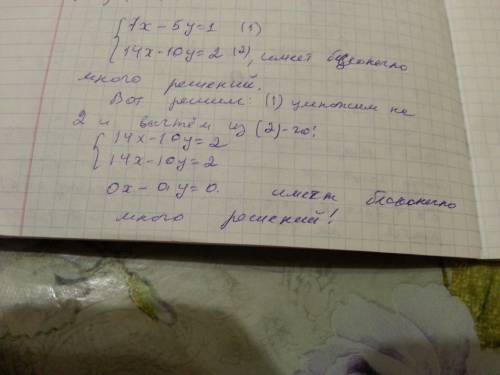 { 7x - 5y = 1 (1)
14x - 10y = 2 (2), имеет бесконечно
много решений.
Вот решим: (1) умножим на
2 и вычтем из (2)-го!
{ 14x - 10y = 2
14x - 10y = 2
0x - 0y = 0. имеет бесконечно
много решений!